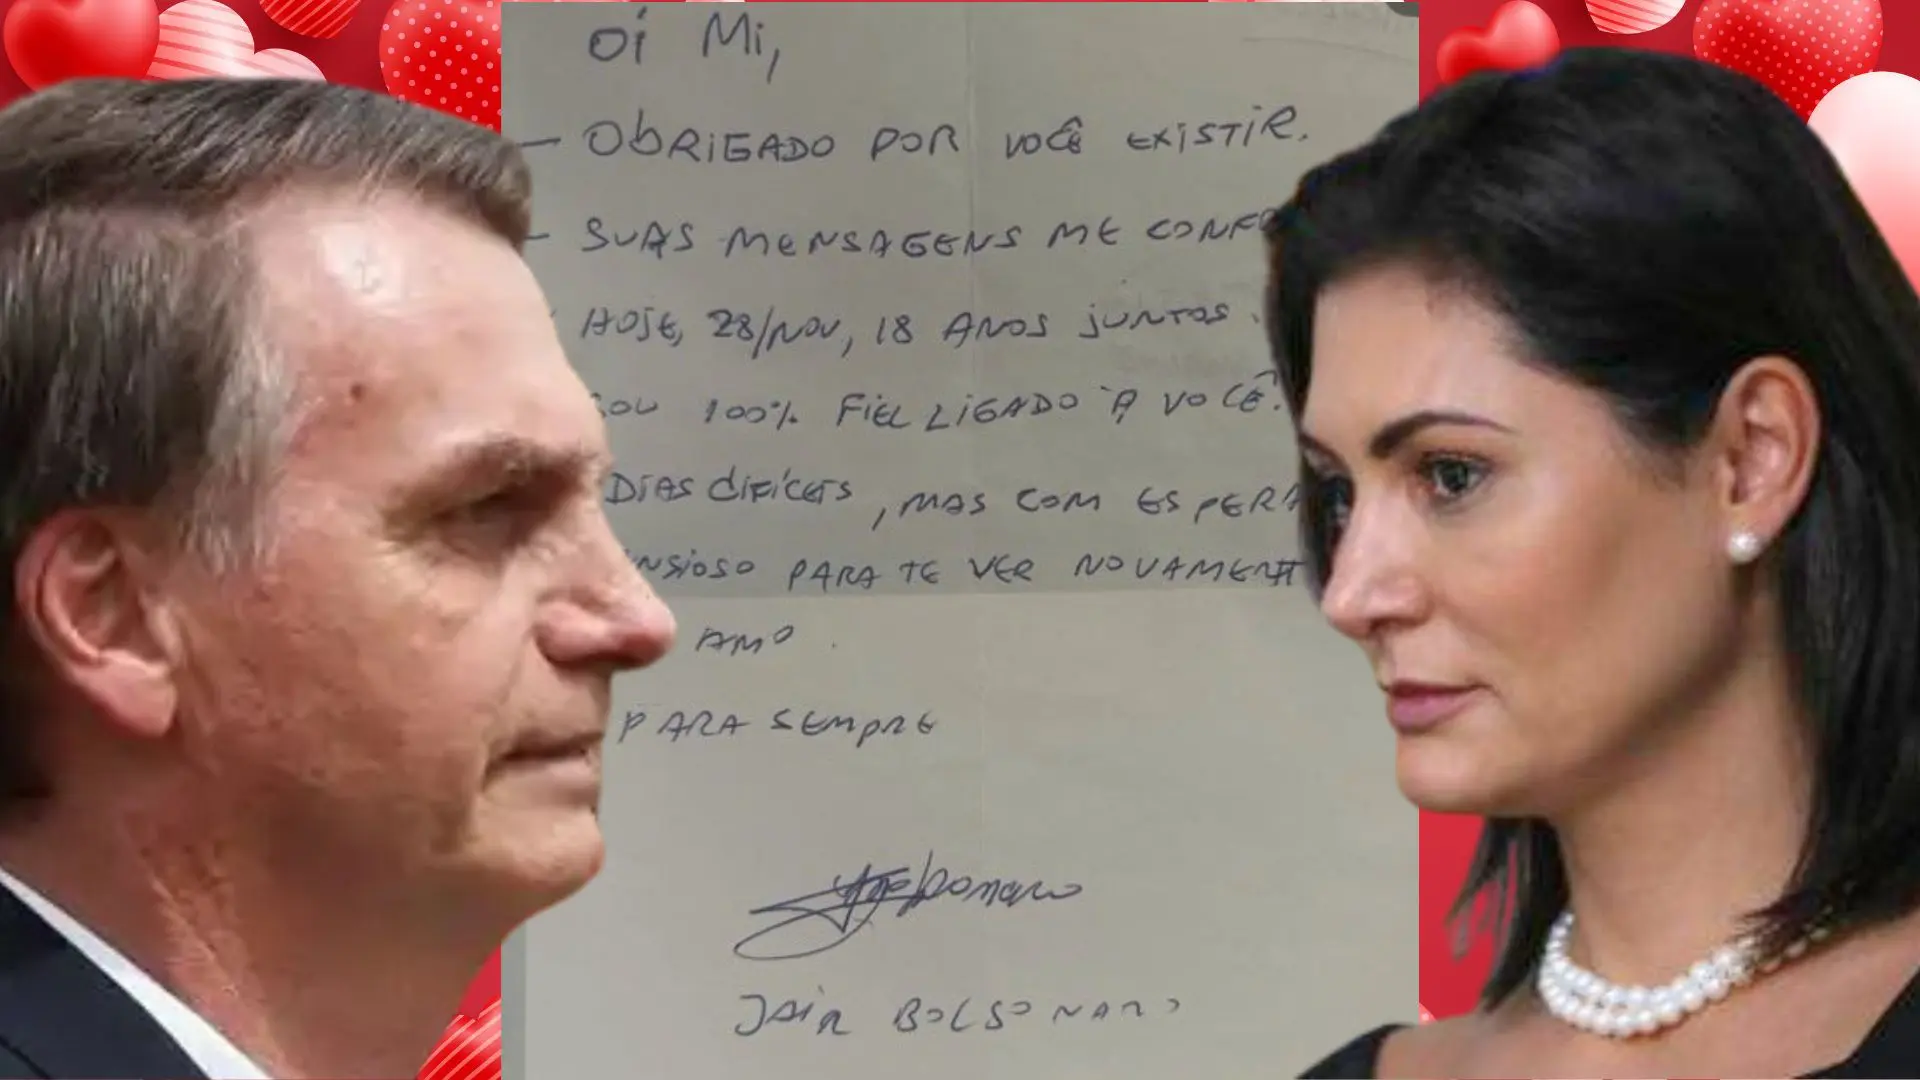 Oi Mi,
- OBRIGADO POR VOCÊ EXISTIR.
- SUAS MENSAGENS ME
HOJE, 28/NOV, 18 ANOS JUNTOS.
100% FIEL LIGADO À VOCÊ.
DIAS DIFÍCEIS, MAS COM
PARA TE VER
AMO.
PARA SEMPRE
JAIR BOLSONARO